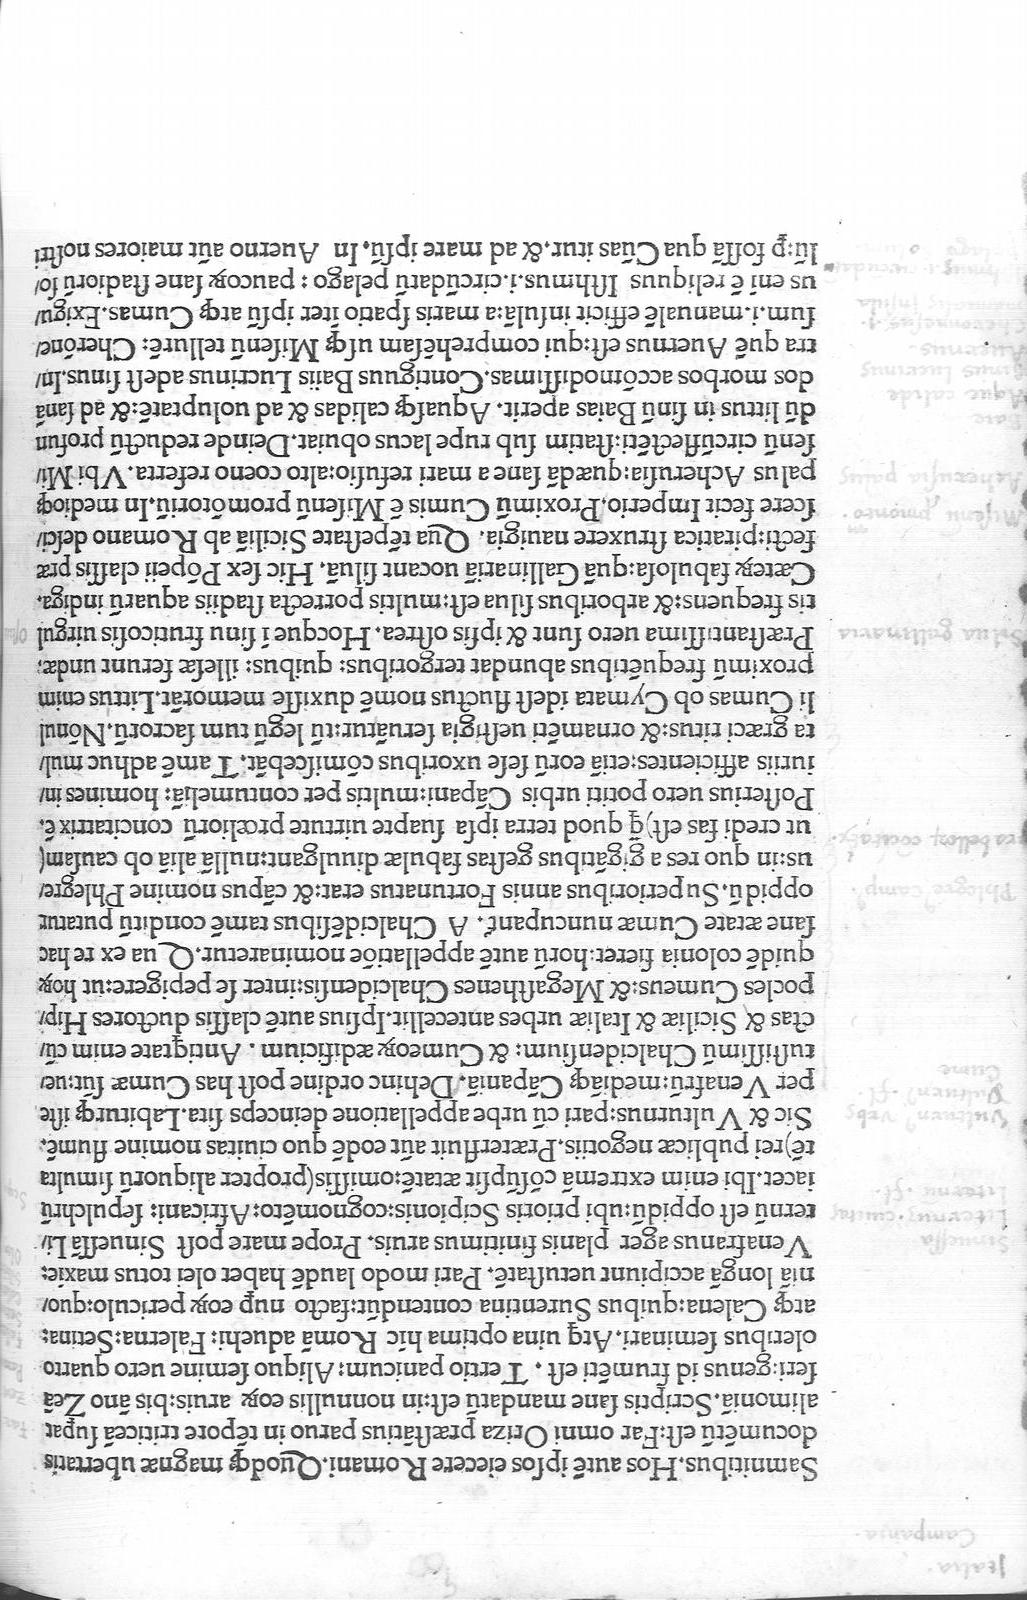 Italia.
Campania.
Samnitibus.Hos autē ipſos eiecere Romani.Quodqꝫ magnæ ubertatis
documētū eſt:Far omni Oriza præſtātius paruo in tēpore triticeā ſuꝑat
alimoniā.Scriptis ſane mandatū eſt:in nonnullis eoꝝ aruis:bis āno Zeā
ſeri:genus id frumēti eſt. Tertio panicum: Aliquo ſemine uero quarto
oleribus ſeminari.Atq̨ uina optima hic Romā aduehi: Falerna:Setina:
atqꝫ Calena:quibus Surentina contendūt:facto nuꝑ eoꝝ periculo:quo/
niā longā accipiunt uetuſtatē. Pari modo laudē habet olei totus maxie:
Venafranus ager planis finitimus aruis. Prope mare poſt Sinueſſā Li/
ternū eſt oppidū:ubi prioris Scipionis:cognomēto:Africani: ſepulchrū
iacet.Ibi enim extremā cōſūpſit ætatē:omiſſis(propter aliquorū ſimulta
tē)rei publicæ negotiis.Præterfluit aūt eodē quo ciuitas nomine flumē.
Sic & Vulturnus:pari cū urbe appellatione deinceps ſita.Labiturqꝫ iſte
per Venafrū:mediāqꝫ Cāpaniā.Dehinc ordine poſt has Cumæ ſūt:ue/
tuſtiſſimū Chalcidenſium: & Cumeoꝝ ædificium. Antiq̨tate enim cū/
ctas & Siciliæ & Italiæ urbes antecellit.Ipſius autē claſſis ductores Hip/
pocles Cumeus:& Megaſthenes Chalcidenſis:inter ſe pepigere:ut hoꝝ
quidē colonia fieret:horū autē appellatiōe nominaretur.Qua ex re hac
ſane ætate Cumæ nuncupant᷑. A Chalcidēſibus tamē conditū putatur
oppidū.Superioribus annis Fortunatus erat:& cāpus nomine Phlegre/
us:in quo res a gigātibus geſtas fabulæ diuulgant:nullā aliā ob cauſam(
ut credi fas eſt)q̄ quod terra ipſa ſuapte uirtute prœliorū concitatrix ē.
Poſterius uero potiti urbis Cāpani:multis per contumeliā: homines in/
iuriis afficientes:etiā eorū ſeſe uxoribus cōmiſcebāt. Tamē adhuc mul/
ta græci ritus:& ornamēti ueſtigia ſeruātur:tū legū tum ſacrorū.Nōnul
li Cumas ob Cymata ideſt fluctus nomē duxiſſe memorāt.Littus enim
proximū frequētibus abundat tergoribus: quibus: illeſæ ferunt undæ:
Præſtantiſſima uero ſunt & ipſis oſtrea. Hocque ī ſinu fruticoſis uirgul
tis frequens:& arboribus ſilua eſt:multis porrecta ſtadiis aquarū indiga.
Cæteꝝ fabuloſa:quā Gallinariā uocant ſiluā. Hic ſex Pōpeii claſſis præ
fecti:piratica ſtruxere nauigia. Qua tēpeſtate Siciliā ab Romano deſci/
ſcere fecit Imperio. Proximū Cumis ē Miſenū promōtoriū.In medioqꝫ
palus Acheruſia:quædā ſane a mari refuſio:alto coeno referta. Vbi Mi/
ſenū circūflectēti:ſtatim ſub rupe lacus obuiat.Deinde reductū profun
dū littus in ſinū Baias aperit. Aquaſqꝫ calidas & ad uoluptatē:& ad ſanā
dos morbos accōmodiſſimas.Contiguus Baiis Lucrinus adeſt ſinus.In/
tra quē Auernus eſt:qui comprehēſam uſqꝫ Miſenū tellurē: Cherōne/
ſum.i.manualē efficit inſulā:a maris ſpatio iter ipſū atqꝫ Cumas.Exigu/
us eni ē reliquus Iſthmus.i.circūdatū pelago: paucoꝝ ſane ſtadiorū ſo/
lū:ꝑ foſſā qua Cūas itur.& ad mare ipſū. In Auerno aūt maiores noſtri
Sinueſſa
Liternū .fl.
Cume
Silua gallinaria
Baie
Aque calide
Sinus lucrinus
Auernus.